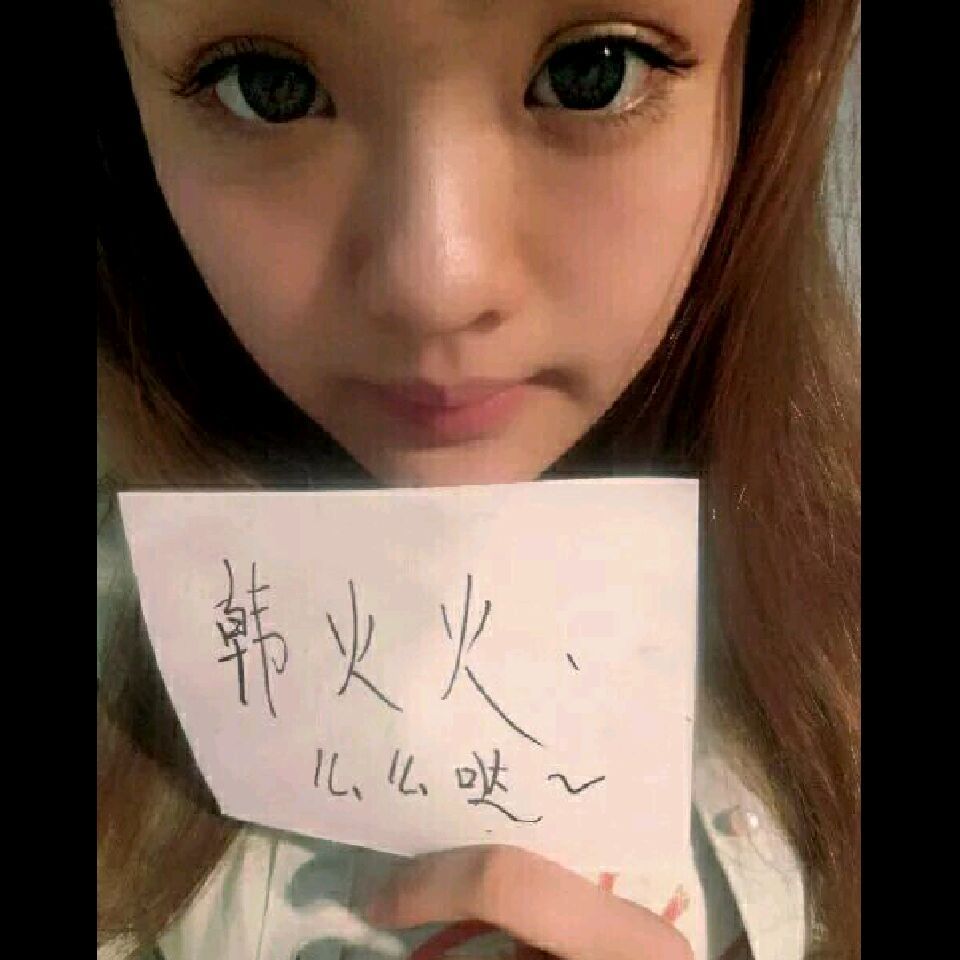 韩火火、
么么哒~